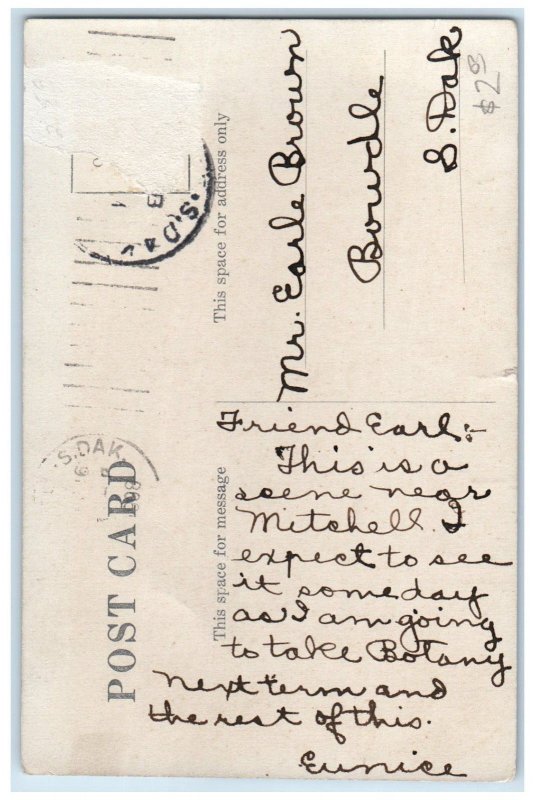 POST CARD
This space for message
This space for address only
S. DAK
S. DAK
Friend Earl:-
This is a
scene near
Mitchell. I
expect to see
it some day
as I am going
to take Botany
next term and
the rest of this.
Eunice
Mr. Earle Brown
Bowdle
S. Dak
$2